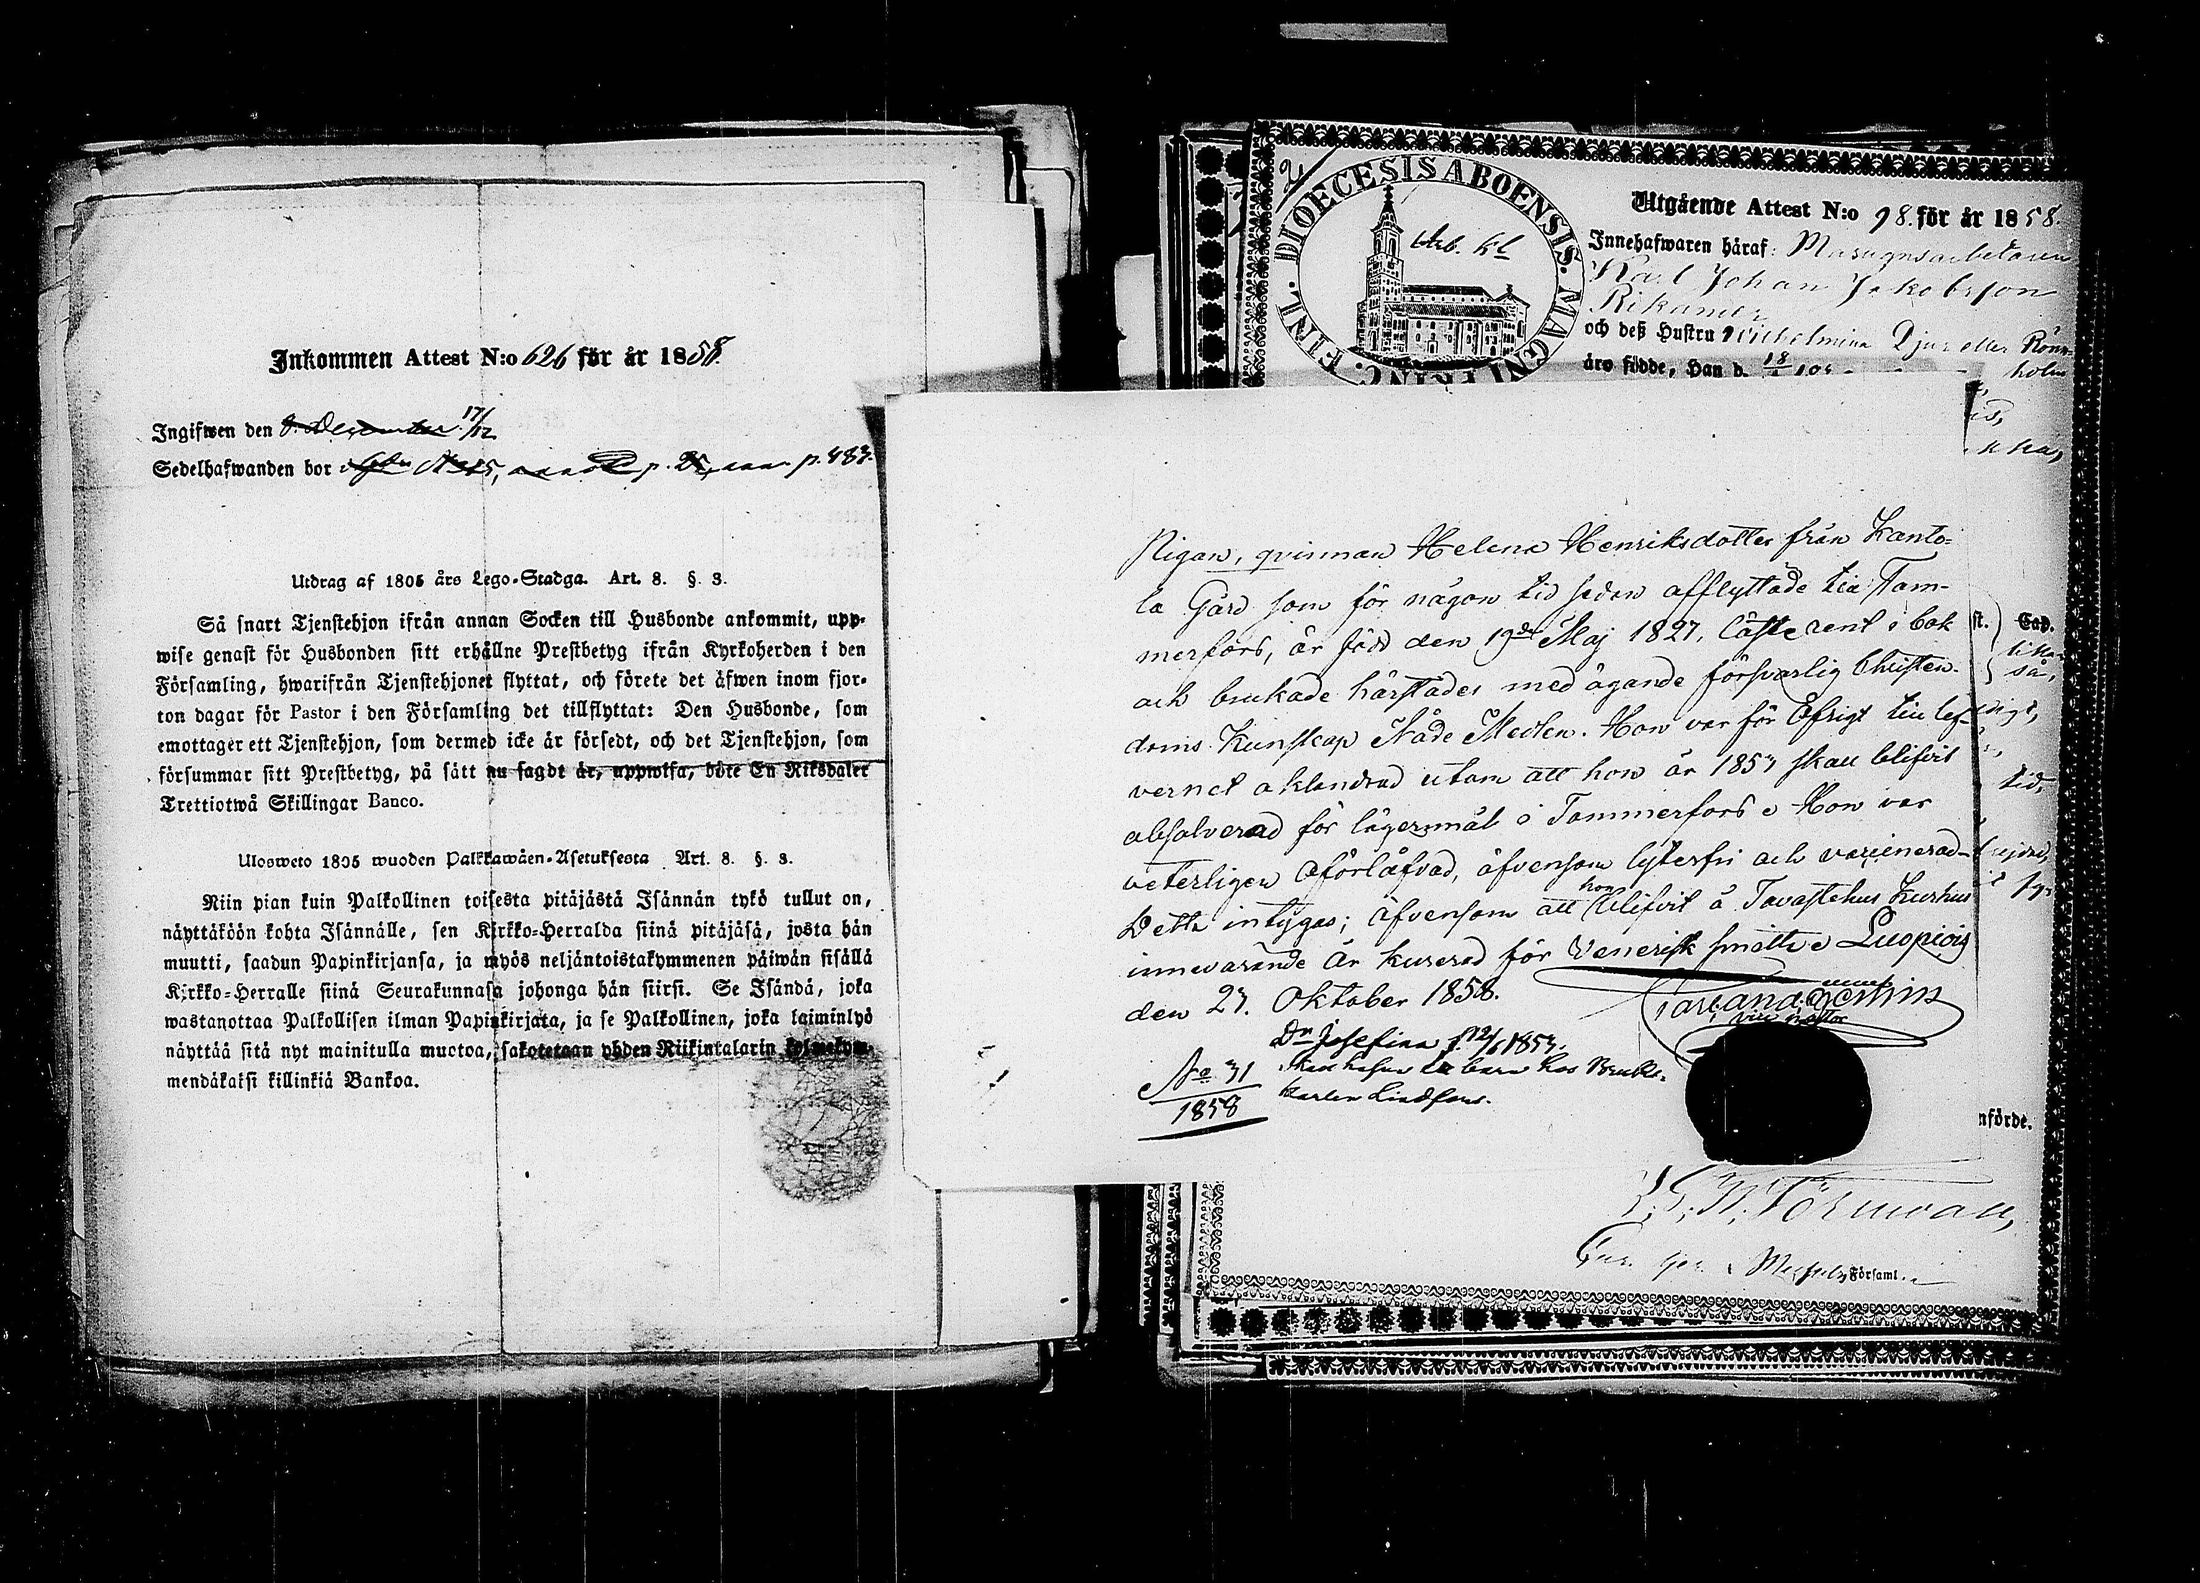 Inkommen Attest N:o 626 för år 1858.
Ingifwen den 8. December 17/12
Sedelhafwanden bor i p. 25, p. 483.
Utdrag af 1805 års Lego-Stadga. Art. 8. §. 3.
Så snart Tjenstehjon ifrån annan Socken till Husbonde ankommit, upp-
wise genast för Husbonden sitt erhållne Prestbetyg ifrån Kyrkoherden i den
Församling, hwarifrån Tjenstehjonet flyttat, och förete det äfwen inom fjor-
ton dagar för Pastor i den Församling det tillflyttat: Den Husbonde, som
emottager ett Tjenstehjon, som dermed icke är försedt, och det Tjenstehjon, som
försummar sitt Prestbetyg, på sätt nu sagdt är, uppwisa, böte En Riksdaler
Trettiotwå Skillingar Banco.
Ulosweto 1805 wuoden Palkkawäen-Asetuksesta Art. 8. §. 3.
Niin pian kuin Palkollinen toisesta pitäjästä Isännän tykö tullut on,
näyttäköön kohta Isännälle, sen Kirkko-Herralda siinä pitäjäsä, josta hän
muutti, saadun Papinkirjansa, ja myös neljäntoistakymmenen päiwän sisällä
Kirkko-Herralle siinä Seurakunnasa johonga hän siirsi. Se Isändä, joka
wastanottaa Palkollisen ilman Papinkirjata, ja se Palkollinen, joka laiminlyö
näyttää sitä nyt mainitulla muotoa, sakotetaan yhden Riikintalarin kolmekym-
mendäkaksi killinkiä Bankoa.
DIOECESIS ABOENSIS. MAGNI PRINC. FINL.
Utgående Attest N:o 98. för år 1858.
Innehafwaren häraf: Masugnsarbetaren
Karl Johan Jakobsson
Rikander
och deß Hustru Wilhelmina Djur eller Rönn-
holm
års födde, Han d. 18
Pigan, qvinnan Helena Henriksdotter från Kanto-
la Gård som för någon tid sedan afflyttade till Tam-
merfors, är född den 19de Maj 1827, läste rent i bok
och brukade härstädes med ägande försvarlig Christen-
doms Kunskap Nåde Medlen. Hon var för Öfrigt till lef-
vernet oklandrad utom att hon år 1853 skall blifvit
absolverad för lägersmål i Tammerfors. Hon var
veterligen oförlåfvad, äfvensom lyterfri och vaccinerad
Detta intygas; äfvensom att hon blifvit å Tavastehus Kurhus
innevarande år kurerad för Venerisk smitta. Luopiois
den 27. Oktober 1858.
vice pastor
Dr Josefina f. 12/6 1853.
Skall hafva ett barn hos Bruks-
karlen Lindfors.
No 31
1858
st. Cap.
så,
tid,
nförde.
Törnwall,
Församl.